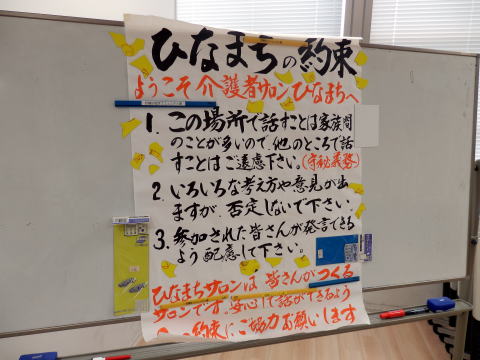 ひなまちの約束
ようこそ介護者サロンひなまちへ
1. この場所で話すことは家族間
のことが多いので、他のところで話
すことはご遠慮下さい。(守秘義務)
2. いろいろな考え方や意見が出
ますが、否定しないで下さい
3. 参加された皆さんが発言できる
よう配慮して下さい。
ひなまちサロンは皆さんがつくる
サロンです。安心して話ができるよう
約束にご協力お願いします